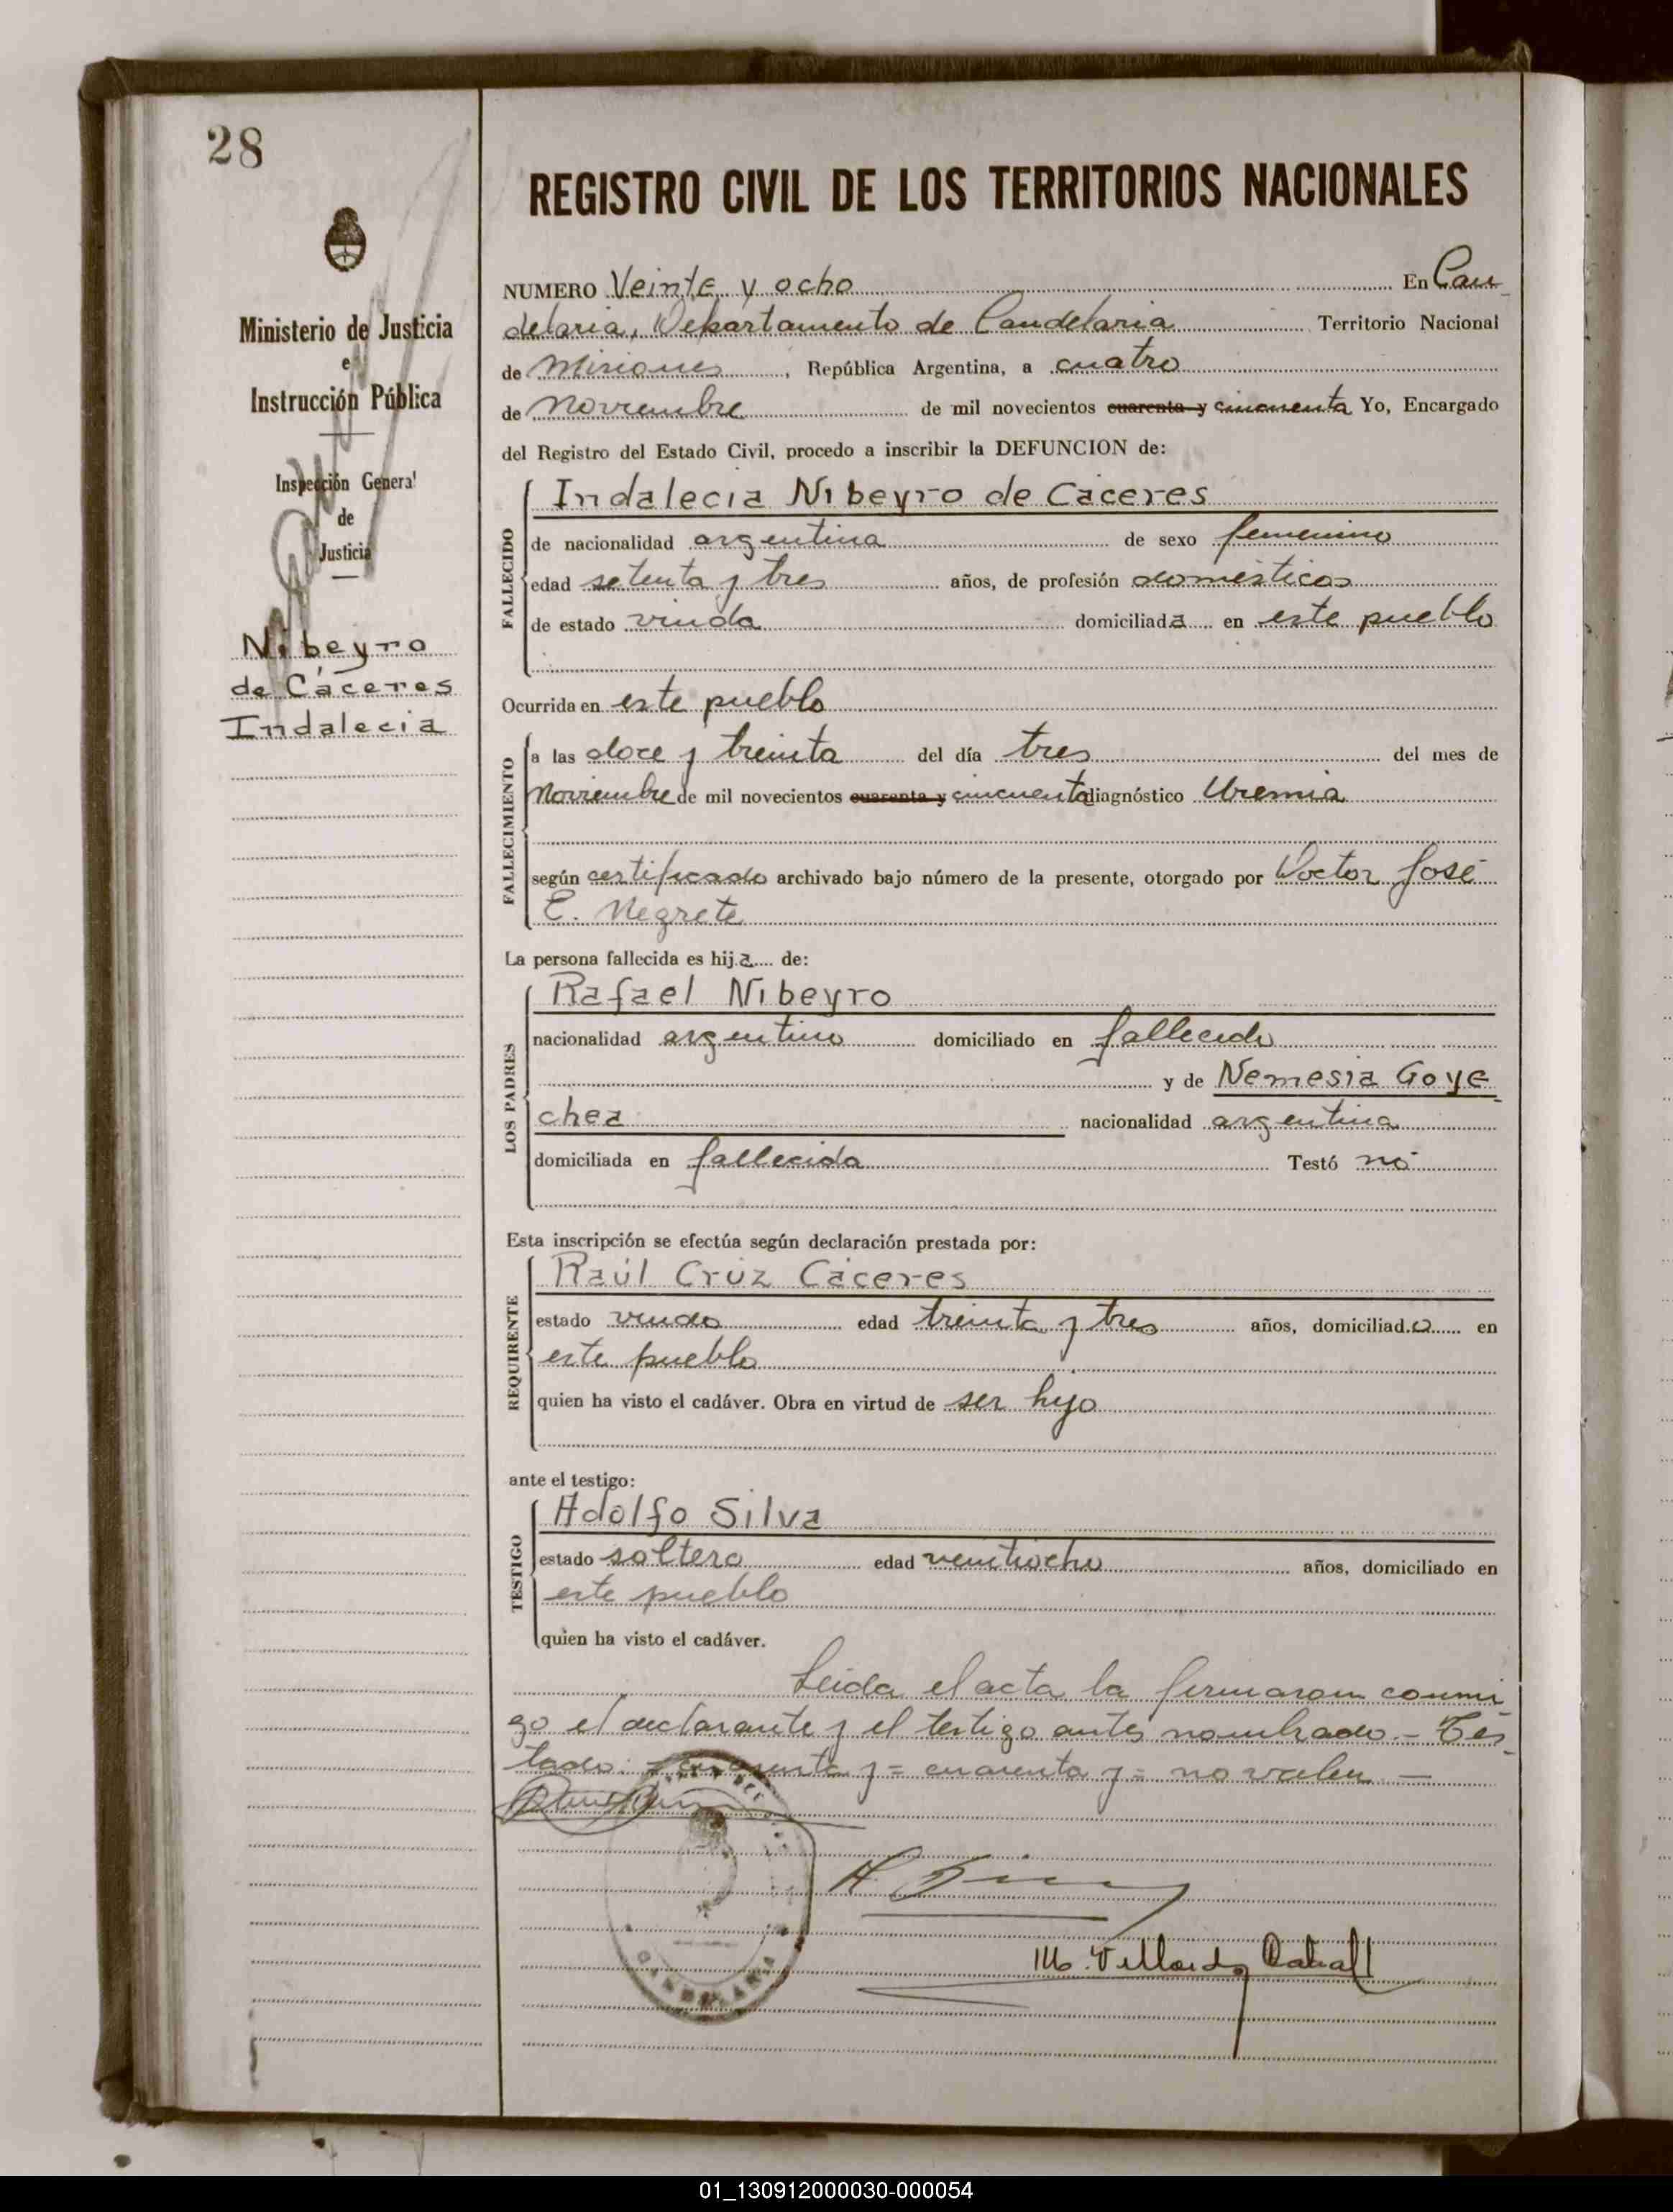 28
REGISTRO CIVIL DE LOS TERRITORIOS NACIONALES
Ministerio de Justicia
e
Instrucción Pública
Inspección General
de
Justicia
Nibeyro
de Cáceres
Indalecia
NUMERO Veinte y ocho En Can
delaria, Departamento de Candelaria Territorio Nacional
de Misiones, República Argentina, a cuatro
de Noviembre de mil novecientos cuarenta y cincuenta Yo, Encargado
del Registro del Estado Civil, procedo a inscribir la DEFUNCION de:
FALLECIDO
Indalecia Nibeyro de Cáceres
de nacionalidad argentina de sexo femenino
edad setenta y tres años, de profesión domésticos
de estado viuda domiciliada en este pueblo
Ocurrida en este pueblo
FALLECIMIENTO
a las doce y treinta del día tres del mes de
Noviembre de mil novecientos cuarenta y cincuenta diagnóstico Uremia
según certificado archivado bajo número de la presente, otorgado por Doctor José
E. Negrete
La persona fallecida es hija de:
LOS PADRES
Rafael Nibeyro
nacionalidad argentino domiciliado en fallecido
y de Nemesia Goye
chea nacionalidad argentina
domiciliada en fallecida Testó no
Esta inscripción se efectúa según declaración prestada por:
REQUIRENTE
Raúl Cruz Cáceres
estado viudo edad treinta y tres años, domiciliado en
este pueblo
quien ha visto el cadáver. Obra en virtud de ser hijo
ante el testigo:
TESTIGO
Adolfo Silva
estado soltero edad veintiocho años, domiciliado en
este pueblo
quien ha visto el cadáver.
Leida el acta la firmaron conmi
go el declarante y el testigo antes nombrado.- Tes
tado: cuarenta y = cuarenta y = no valen. —
CANDELARIA
01_130912000030-000054